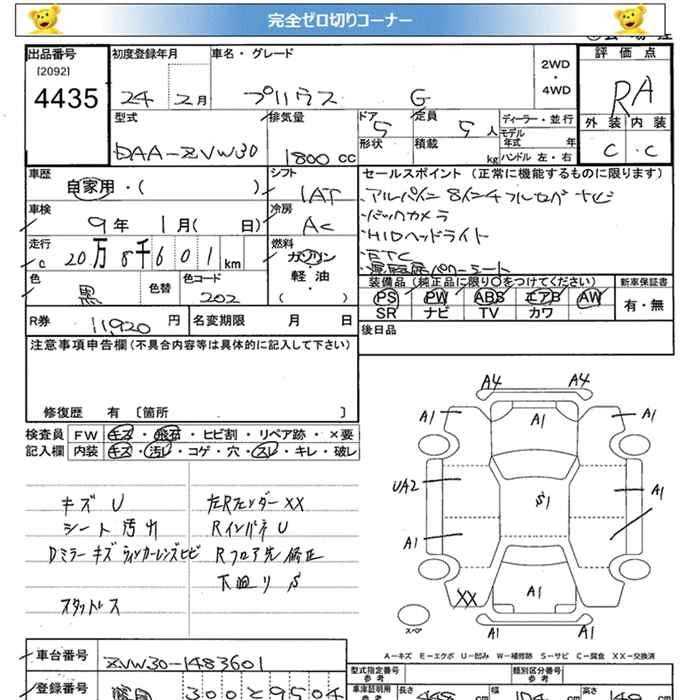 完全ゼロ切りコーナー
出品番号
[2092]
4435
初度登録年月
24 2月
車名・グレード
プリウス G
2WD
・
4WD
評価点
RA
外装 内装
C・C
型式
DAA-ZVW30
排気量
1800 cc
ドア
5
定員
5人
形状
積載
kg
ディーラー・並行
モデル
年式 年
ハンドル 左・右
車歴
自家用・( )
シフト
IAT
車検
9年 1月( 日)
冷房
AC
走行
C 20万8千601km
燃料
ガソリン
軽・油
( )
色
黒
色替
色コード
202
セールスポイント(正常に機能するものに限ります)
・アルパイン8インチフルセグナビ
・バックカメラ
・HIDヘッドライト
・ETC
パワーシート
装備品(純正品に限り○をつけてください)
PS PW ABS エアB AW
SR ナビ TV カワ
新車保証書
有・無
R券
11,920円
名変期限 月 日
後日品
注意事項申告欄(不具合内容等は具体的に記入して下さい)
修復歴 有 〔箇所 〕
検査員
記入欄
FW キズ・飛石・ヒビ割・リペア跡・×要
内装 キズ・汚レ・コゲ・穴・スレ・キレ・破レ
キズ U
シート 汚れ
Dミラー キズ ウィンカーレンズヒビ
スタットレス
左Rフェンダー XX
Rインパネ U
Rフロア先 修正
下廻り S
A4 A4
A1 A1 A1
UA2 S1 A1
A1
XX A1
A1 A1
スペア
A-キズ E-エクボ U-凹み W-補修跡 S-サビ C-腐食 XX-交換済
車台番号
ZVW30-1483601
登録番号
300
型式指定番号
参考
類別区分番号
参考
車庫証明用
長さ
cm
幅
cm
高さ
cm